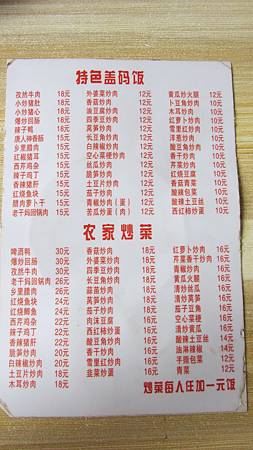 特色盖码饭
孜然牛肉 18元
小炒猪肚 18元
小炒猪心 18元
爆炒回肠 18元
辣子鸭 18元
唐人神香肠 15元
乡里腊肉 15元
红椒猪耳 15元
西芹鸡杂 15元
辣子鸡丁 15元
香辣猪肝 15元
脆笋炒肉 15元
腊肉萝卜干 15元
老干妈回锅肉 15元
外婆菜炒肉 12元
香菇炒肉 12元
油豆腐炒肉 12元
四季豆炒肉 12元
莴笋炒肉 12元
长豆角炒肉 12元
白辣椒炒肉 12元
空心菜梗炒肉 12元
西芹炒肉 12元
青椒炒肉 12元
土豆片炒肉 12元
茄子炒肉 12元
青椒炒肉(蛋) 12元
苦瓜炒肉(蛋) 12元
黄瓜炒火腿 12元
卜豆角炒肉 12元
香干炒肉 12元
木耳炒肉 12元
红萝卜炒肉 12元
雪里红炒肉 12元
洋葱炒肉 12元
酸豆角炒肉 12元
芹菜香干 12元
红烧豆腐 12元
香菇青菜 12元
酸辣包菜 12元
酸辣土豆丝 12元
西红柿炒蛋 12元
农家炒菜
啤酒鸭 30元
爆炒回肠 30元
孜然牛肉 30元
老干妈回锅肉 26元
乡里腊肉 26元
红烧鱼块 24元
红烧鲫鱼 24元
西芹鸡杂 22元
辣子鸡丁 22元
香辣猪肝 22元
脆笋炒肉 20元
白辣椒炒肉 20元
土豆片炒肉 18元
木耳炒肉 18元
香菇炒肉 18元
外婆菜炒肉 18元
四季豆炒肉 18元
莴笋炒肉 18元
青椒炒肉 18元
黄瓜炒肉 18元
茄子炒肉 18元
肉沫豆腐 18元
西红柿炒蛋 18元
酸豆角炒肉 18元
香干炒肉 18元
雪里红炒肉 18元
苦瓜炒蛋 18元
韭菜炒蛋 18元
红萝卜炒肉 18元
芹菜香干炒肉 18元
青椒炒蛋 16元
黄瓜炒蛋 16元
清炒丝瓜 16元
清炒莴笋 16元
茄子豆角 16元
空心菜梗 16元
清炒黄瓜 16元
酸辣土豆丝 14元
油淋辣椒 14元
手撕包菜 15元
青菜 15元
炒菜每人任加一元饭